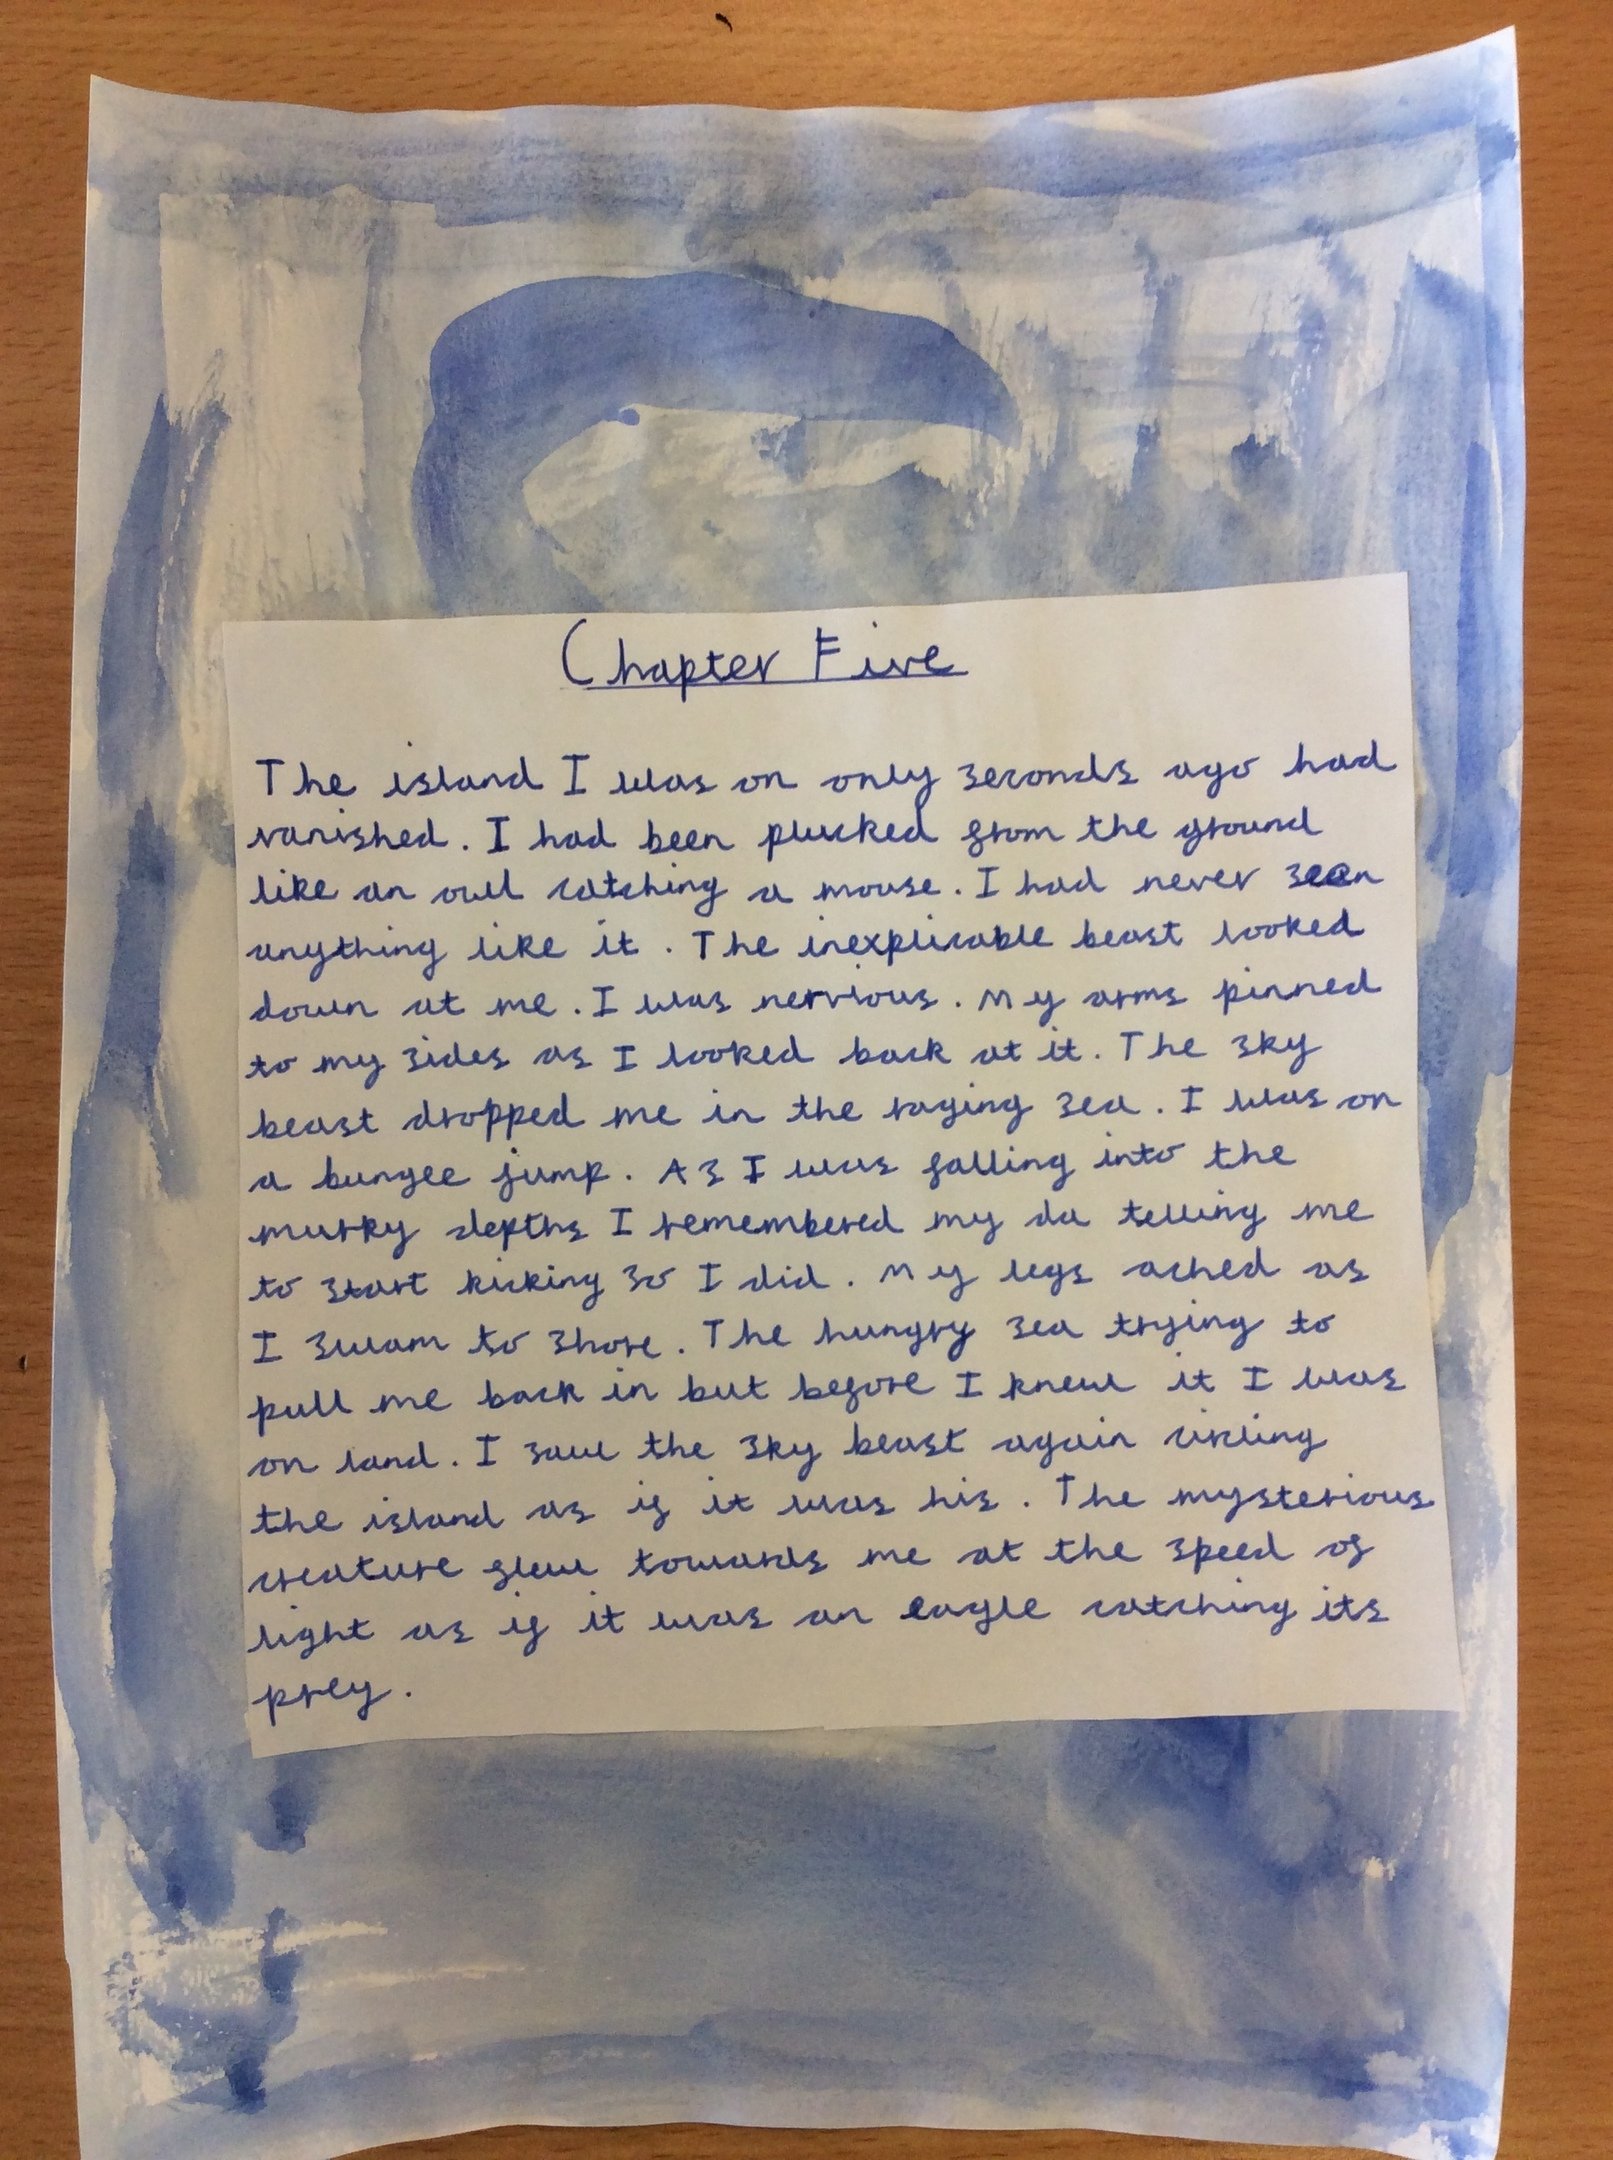 Chapter Five
The island I was on only seconds ago had
vanished. I had been plucked from the ground
like an owl catching a mouse. I had never seen
anything like it. The inexplicable beast looked
down at me. I was nervious. My arms pinned
to my sides as I looked back at it. The sky
beast dropped me in the raging sea. I was on
a bungee jump. As I was falling into the
murky depths I remembered my da telling me
to start kicking so I did. My legs ached as
I swam to shore. The hungry sea trying to
pull me back in but before I knew it I was
on land. I saw the sky beast again cirling
the island as if it was his. The mysterious
creature flew towards me at the speed of
light as if it was an eagle catching its
prey.